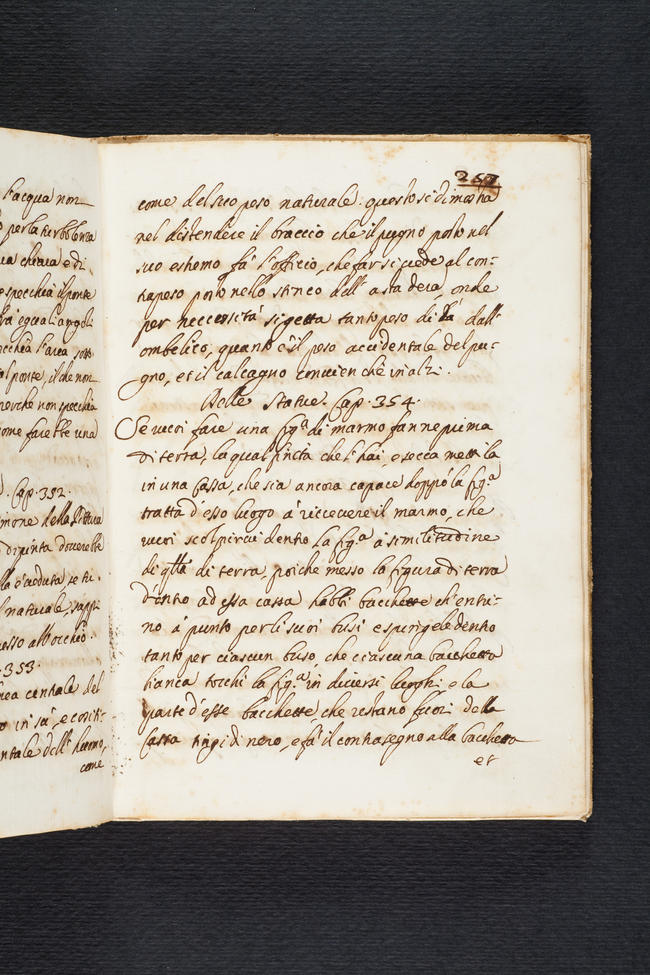 l'acqua non
per la turbolenza
ua chiara e di
specchia il ponte
eguali angoli
l'aria sotto
l ponte, il che non
perche non specchia
ome farebbe una
. Cap. 352.
mone della Pittura
dipinta doverebbe
la veduta, se tu
l naturale, sappi
esso all'occhio.
. 353.
nea centrale del
o in sù, e costi-
ntale dell'huomo,
come
257
come del suo peso naturale: questo si dimostra
nel distendere il braccio che il pugno posto nel
suo estremo fà l'officio, che far si vede al con-
trapeso posto nello stinco dell'asta dera, onde
per neccessità si getta tanto peso di là dall'
ombelico, quanto è il peso accidentale del pu-
gno, et il calcagno convien che s'inalzi.
Delle Statue. Cap. 354.
Se vuoi fare una fig.ª di marmo fanne prima
di terra, la qual finita che l'hai, e secca metti la
in una Cassa, che sia ancora capace doppò la fig.ª
tratta d'esso luogo à riccevere il marmo, che
vuoi scolpirvi dentro la fig.ª à similitudine
di qlla di terra, poiche messo la figura di terra
dentro ad essa cassa habbi bacchette ch'entri-
no à punto per li suoi busi e spingele dentro
tanto per ciascun buso, che ciascuna bacchetta
bianca tocchi la fig.ª in diversi luoghi e la
parte d'esse bacchette, che restano fuori della
Cassa tingi di nero, e fà il contrasegno alla bacchetta
et